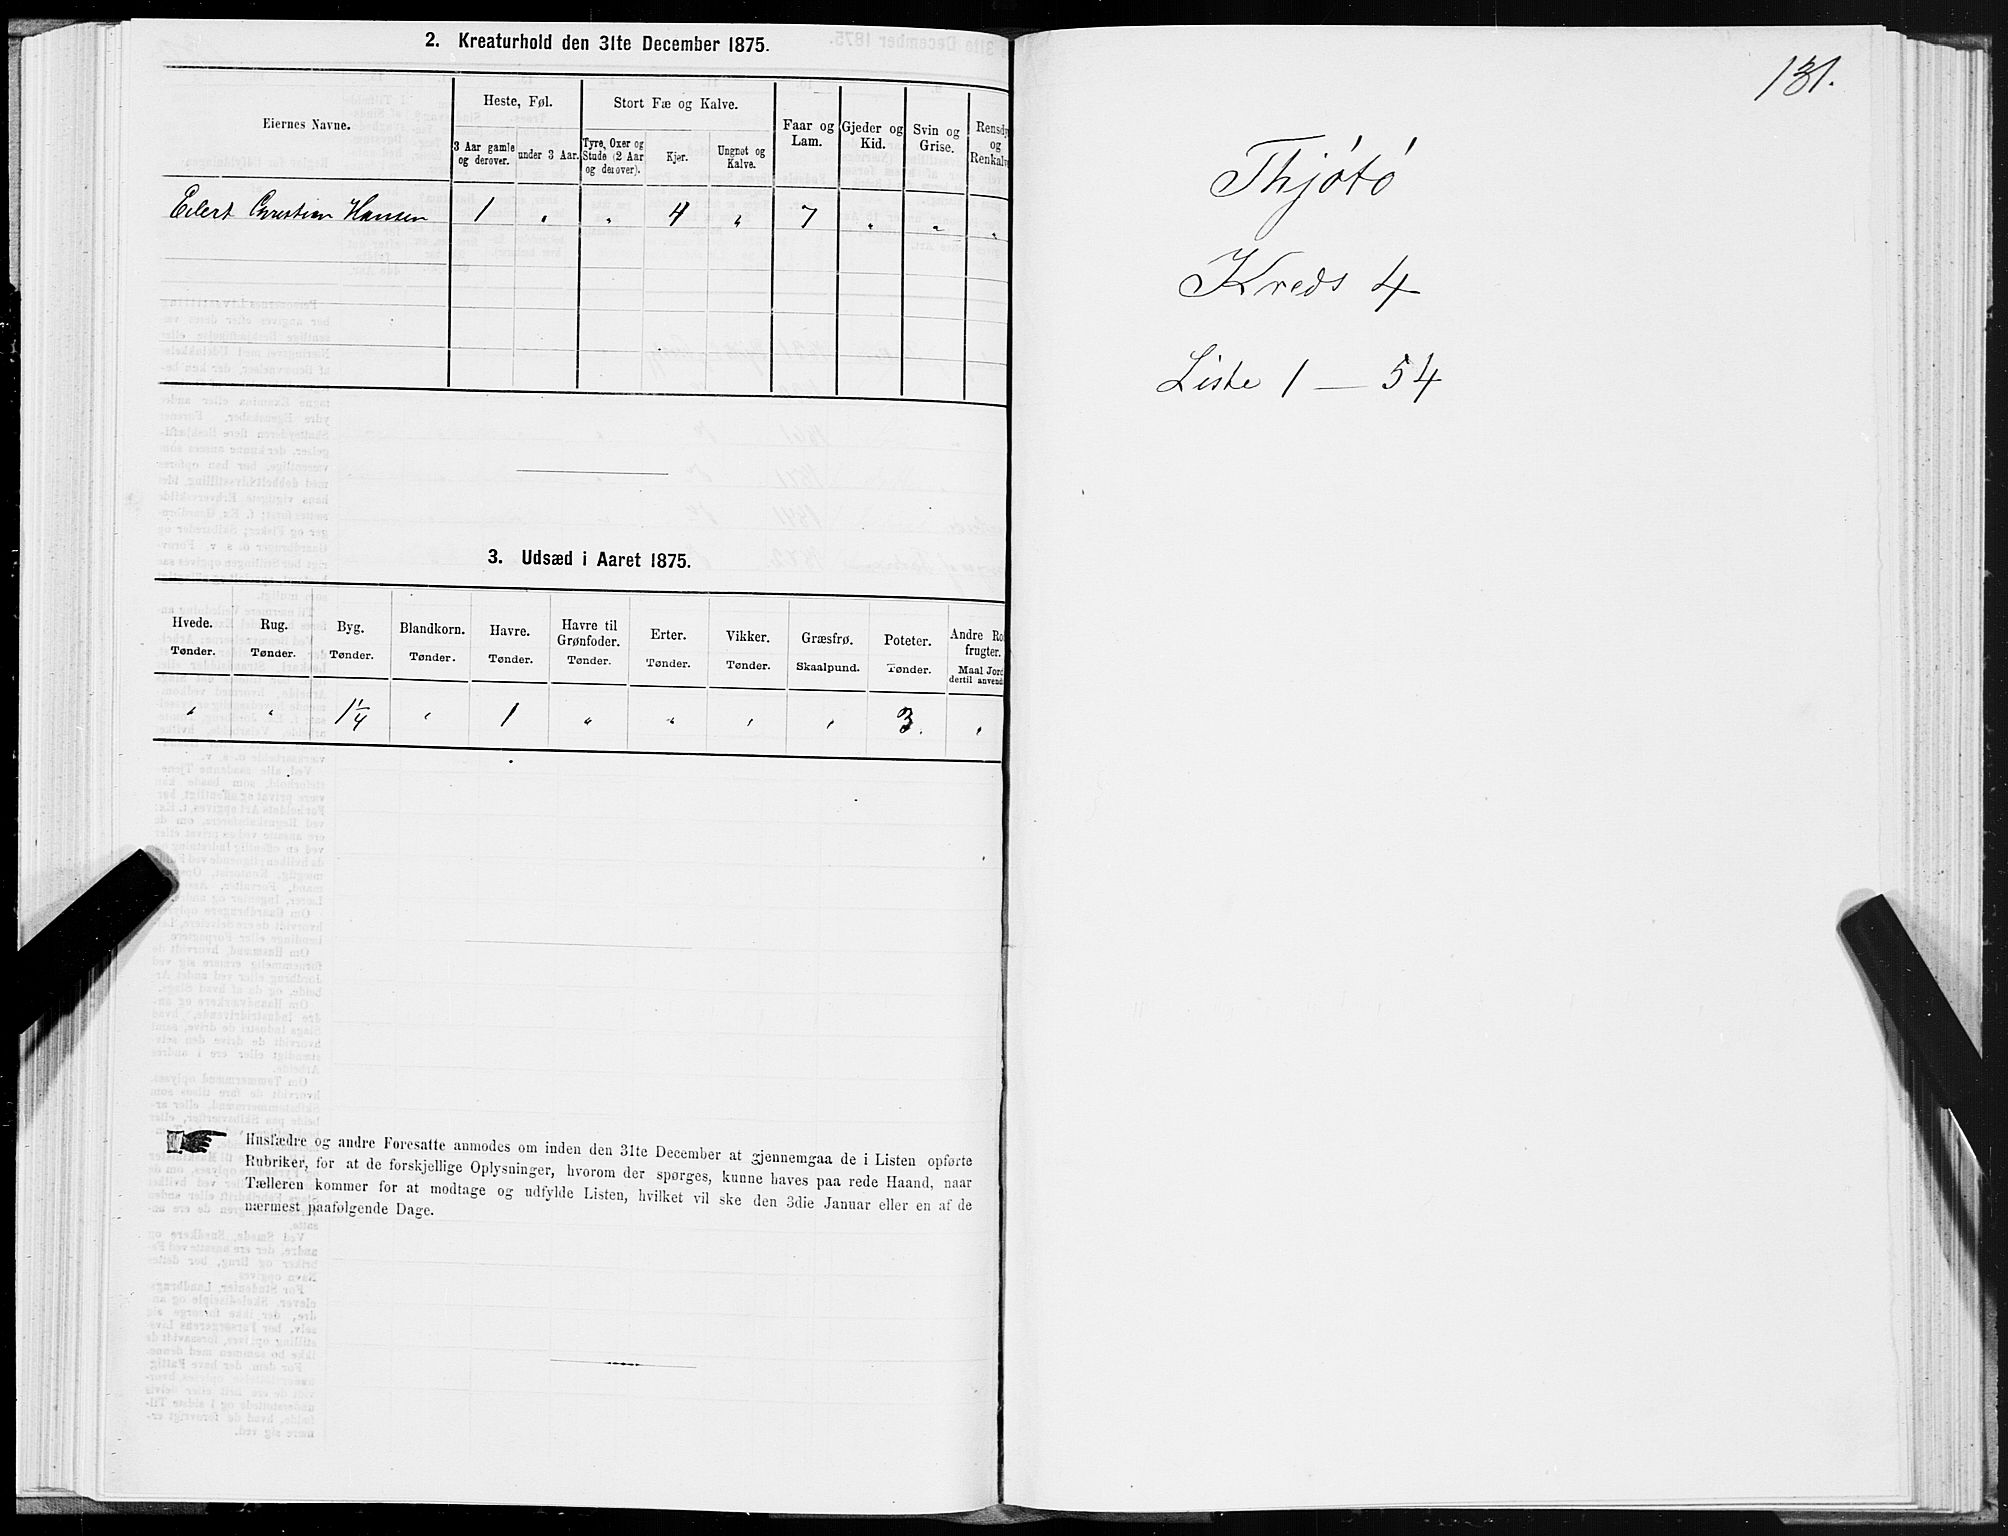 2. Kreaturhold den 31te December 1875.
Eiernes Navne.
Heste, Føl.
Stort Fæ og Kalve.
Faar og Lam.
Gjeder og Kid.
Svin og Grise.
Rensdy
og
Renkalv
3 Aar gamle og derover.
under 3 Aar.
Tyre, Oxer og Stude (2 Aar og derover).
Kjør.
Ungnøt og Kalve.
Eilert Christian Hansen 1 " " 4 " 7 " " "
3. Udsæd i Aaret 1875.
Hvede. Rug. Byg. Blandkorn. Havre. Havre til Grønfoder. Erter. Vikker. Græsfrø. Poteter. Andre Ro frugter.
Tønder. Tønder. Tønder. Tønder. Tønder. Tønder. Tønder. Tønder. Skaalpund. Tønder. Maal Jord dertil anvend
" " 1 1/4 " 1 " " " " 3. "
Husfædre og andre Foresatte anmodes om inden den 31te December at gjennemgaa de i Listen opførte
Rubriker, for at de forskjellige Oplysninger, hvorom der spørges, kunne haves paa rede Haand, naar
Tælleren kommer for at modtage og udfylde Listen, hvilket vil ske den 3die Januar eller en af de
nærmest paafølgende Dage.
131.
Thjötö
Kreds 4
Liste 1 — 54